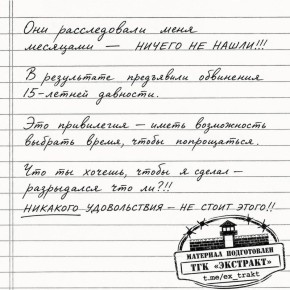 Они расследовали меня
месяцами — НИЧЕГО НЕ НАШЛИ!!!
В результате предъявили обвинения
15-летней давности.
Это привилегия — иметь возможность
выбрать время, чтобы попрощаться.
Что ты хочешь, чтобы я сделал —
разрыдался что ли?!!
НИКАКОГО УДОВОЛЬСТВИЯ — НЕ СТОИТ ЭТОГО!!
МАТЕРИАЛ ПОДГОТОВЛЕН
ТГК «ЭКСТРАКТ»
t.me/ex_trakt